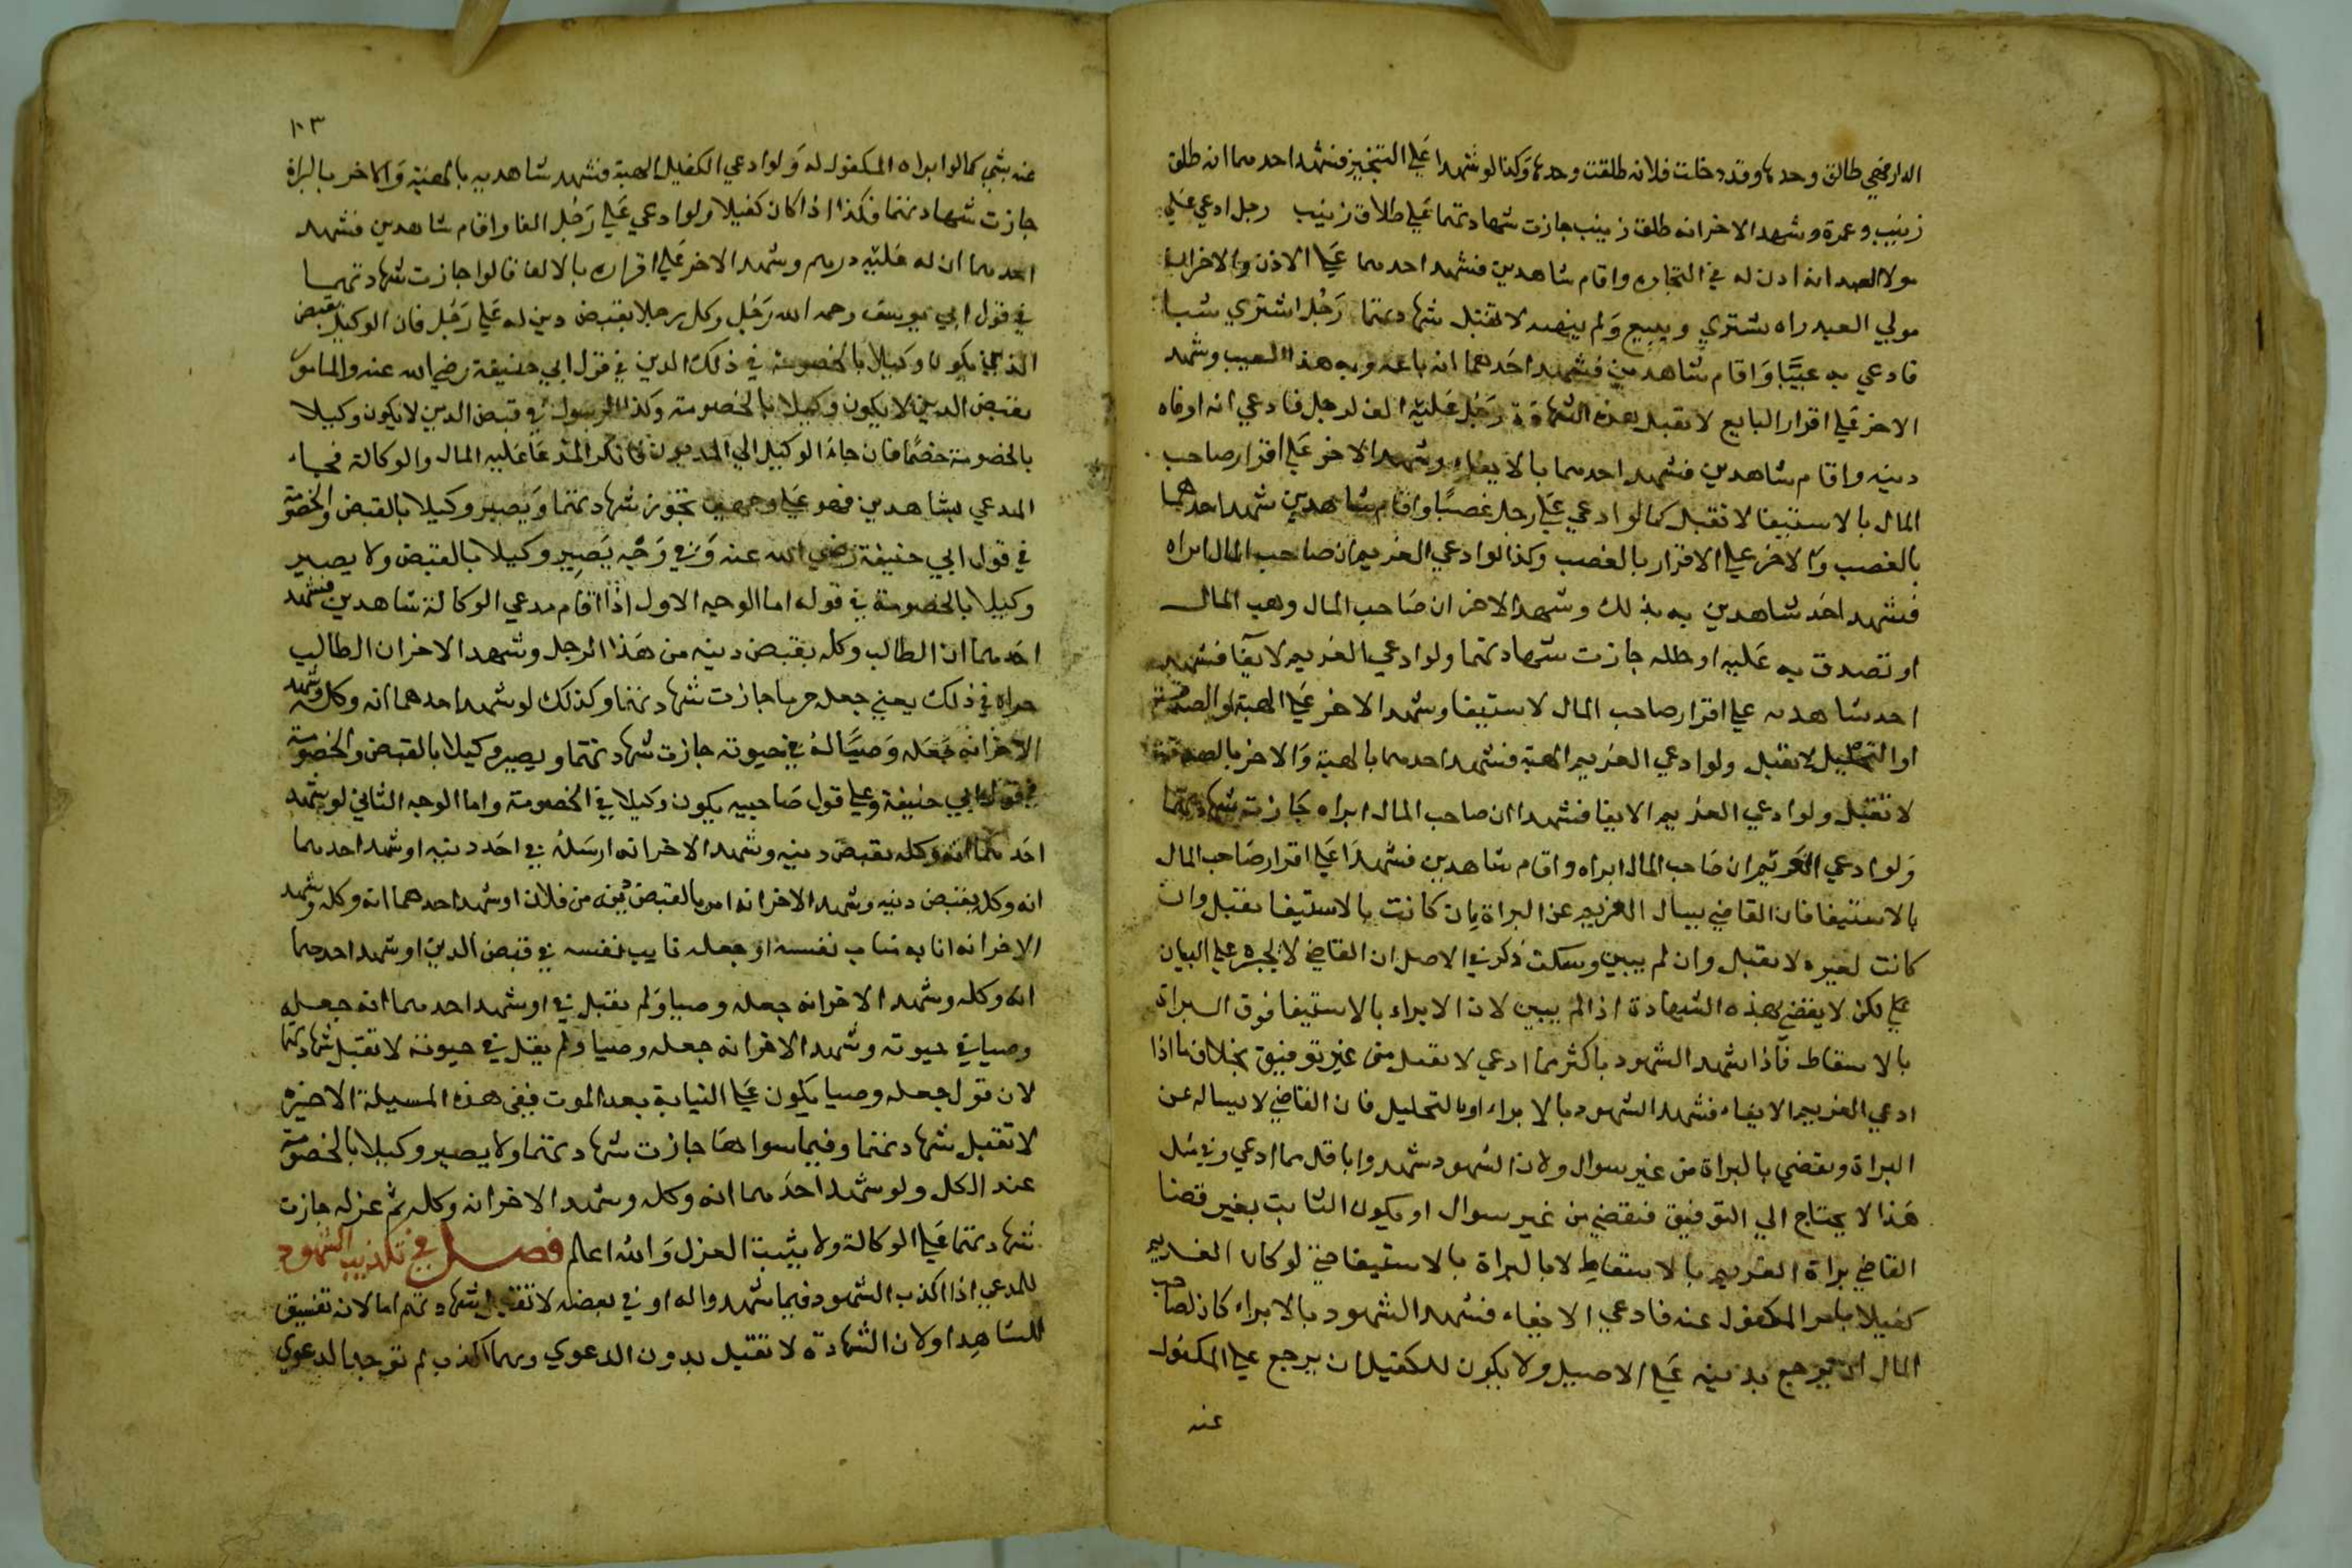 الدار فهي طالق وحدها وقد دخلت فلانه طلقت وحدها وكذا لو شهدا علي التنجيز فشهد احدهما انه طلق
زينب وعمرة وشهد الاخر انه طلق زينب جازت شهادتهما علي طلاق زينب رجل ادعي علي
مولا العبد انه اذن له في التجاره واقام شاهدين فشهد احدهما علي الاذن والاخر ان
مولي العبد راه يشتري ويبيع ولم ينهه لا تقبل شهادتهما رجل اشتري شيا
فادعي به عيبا واقام شاهدين فشهد احدهما انه باعه وبه هذا العيب وشهد
الاخر علي اقرار البايع لا تقبل هذه الشهادة رجل عليه الف لرجل فادعي انه اوفاه
دينه واقام شاهدين فشهد احدهما بالايفاء وشهد الاخر علي اقرار صاحب
المال بالاستيفا لا تقبل كما لو ادعي علي رجل غصبا واقام شاهدين شهد احدهما
بالغصب والاخر علي الاقرار بالغصب وكذا لو ادعي الغريم ان صاحب المال ابراه
فشهد احد شاهدين به بذلك وشهد الاخر ان صاحب المال وهب المال
او تصدق به عليه او حلله جازت شهادتهما ولو ادعي الغريم لايفا فشهد
احد شاهديه علي اقرار صاحب المال لاستيفا وشهد الاخر علي الهبة او الصدقة
او التحليل لا تقبل ولو ادعي الغريم الهبة فشهد احدهما بالهبة والاخر بالصدقة
لا تقبل ولو ادعي الغريم الايفا فشهدا ان صاحب المال ابراه جازت شهادتهما
ولو ادعي الغريم ان صاحب المال ابراه واقام شاهدين فشهدا علي اقرار صاحب المال
بالاستيفا فان القاضي يسال الغريم عن البراة ان كانت بالاستيفا تقبل وان
كانت لغيره لا تقبل وان لم يبين وسكت ذكر في الاصل ان القاضي لا يجبره علي البيان
علي لكن لا يقضي بهذه الشهادة اذا لم يبين لان الابراء بالاستيفا فوق البراة
بالاسقاط فاذا شهد الشهود باكثر مما ادعي لا تقبل من غير توفيق بخلاف ما اذا
ادعي الغريم الايفاء فشهد الشهود بالابراء او بالتحليل فان القاضي لا يساله عن
البراة ويقضي بالبراة من غير سوال ولان الشهود شهدوا باقل مما ادعي وفي مثل
هذا لا يحتاج الي التوفيق فيقضي من غير سوال او يكون الثابت بغير قضا
القاضي براة الغريم بالاسقاط لا بالبراة بالاستيفا حتي لو كان الغريم
كفيلا بامر المكفول عنه فادعي الايفاء فشهد الشهود بالابراء كان لصاحب
المال ان يرجع بدينه علي الاصيل ولا يكون للكفيل ان يرجع علي المكفول
عنه
١٠٣
عنه بشي كما لو ابراه المكفول له ولو ادعي الكفيل الهبة فشهد شاهديه بالهبة والاخر بالبراة
جازت شهادتهما فكذا اذا كان كفيلا ولو ادعي علي رجل الفا واقام شاهدين فشهد
احدهما ان له عليه درهم وشهد الاخر علي اقراره بالالف قالوا جازت شهادتهما
في قول ابي يوسف رحمه الله رجل وكل رجلا بقبض دين له علي رجل فان الوكيل بقبض
الدين يكون وكيلا بالخصومة في ذلك الدين في قول ابي حنيفة رضي الله عنه والمامور
بقبض الدين لا يكون وكيلا بالخصومة وكذا الرسول في قبض الدين لا يكون وكيلا
بالخصومة خصما فان جاء الوكيل الي المديون فانكر المدعا عليه المال والوكالة فجاء
المدعي بشاهدين فهو علي وجهين تجوز شهادتهما ويصير وكيلا بالقبض والخصومة
في قول ابي حنيفة رضي الله عنه وفي وجه يصير وكيلا بالقبض ولا يصير
وكيلا بالخصومة في قوله اما الوجه الاول اذا اقام مدعي الوكالة شاهدين فشهد
احدهما ان الطالب وكله بقبض دينه من هذا الرجل وشهد الاخر ان الطالب
جراه في ذلك يعني جعله جريا جازت شهادتهما وكذلك لو شهد احدهما انه وكله وشهد
الاخر انه جعله وصيا له في حيوته جازت شهادتهما ويصير وكيلا بالقبض والخصومة
في قول ابي حنيفة وعلي قول صاحبيه يكون وكيلا في الخصومة واما الوجه الثاني لو شهد
احدهما انه وكله بقبض دينه وشهد الاخر انه ارسله في اخذ دينه او شهد احدهما
انه وكل بقبض دينه وشهد الاخر انه امره بالقبض دينه من فلان او شهد احدهما انه وكله وشهد
الاخر انه انابه مناب نفسه او جعله نايب نفسه في قبض الدين او شهد احدهما
انه وكله وشهد الاخر انه جعله وصيا ولم يقبل في او شهد احدهما انه جعله
وصيا في حيوته وشهد الاخر انه جعله وصيا ولم يقل في حيوته لا تقبل شهادتهما
لان قول جعله وصيا يكون علي النيابة بعد الموت ففي هذه المسيلة الاخيره
لا تقبل شهادتهما وفيما سواها جازت شهادتهما ولا يصير وكيلا بالخصومة
عند الكل ولو شهد احدهما انه وكله وشهد الاخر انه وكله ثم عزله جازت
شهادتهما علي الوكالة ولا يثبت العزل والله اعلم فصل في تكذيب الشهود
للمدعي اذا اكذب الشهود فيما شهدوا له او في بعضه لا تقبل شهادتهم اما لانه تفسيق
للشاهد او لان الشهادة لا تقبل بدون الدعوي وبهما اكذب لم توجد الدعوي